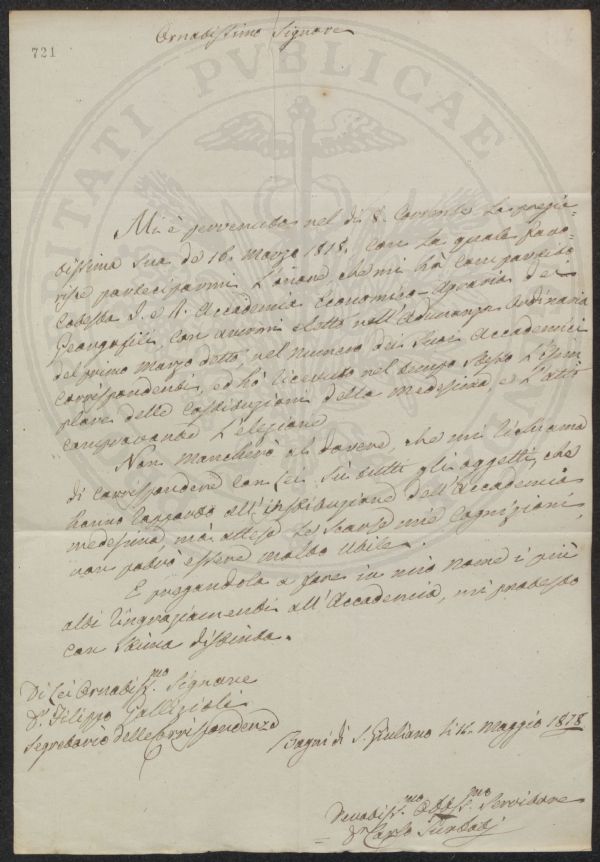 721
Ornatissimo Signore
PUBLICAE
Mi è pervenuta nel dì 8. Corrente la pregia-
tissima sua de 16. Marzo 1818. con la quale favo-
risce parteciparmi l'onore che mi hà compartito
Codesta I. e R. Accademia Economico-Agraria dei
Georgofili, con avermi eletto nell'Adunanza Ordinaria
del primo Marzo detto, nel numero dei suoi Accademici
Corrispondenti, ed hò ricevuto nel tempo stesso l'Esem-
plare delle Costituzioni della Medesima e l'atto
comprovante l'elezione.
Non mancherò al dovere, che mi richiama
di corrispondere con Lei sù tutti gli oggetti, che
hanno rapporto all'istituzione dell'Accademia
medesima, mà attese le scarse mie cognizioni,
non potrò essere molto utile.
E pregandola a fare in mio nome i più
alti ringraziamenti all'Accademia, mi protesto
con stima distinta.
Di Lei Ornatiss.mo Signore
Dr. Filippo Gallizioli
Segretario delle Corrispondenze
Bagni di S. Giuliano li Maggio 1818
Devotiss.mo Obb.mo Servitore
Dr Carlo